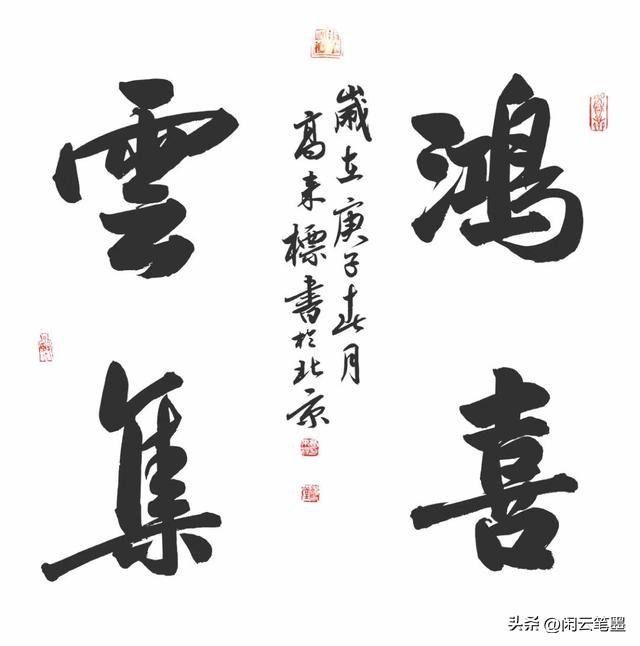 鴻喜
雲集
歲在庚子月
高来標書於北京
头条 @闲云笔墨